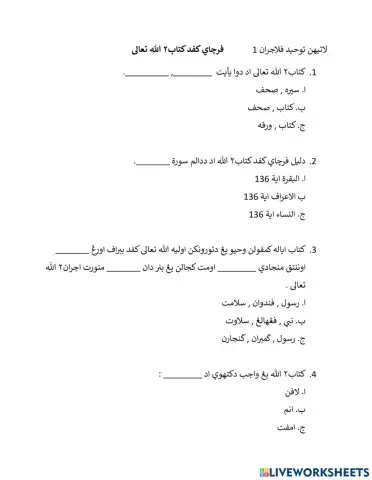 لاتيهن توحيد فلاجران 1 فرچاي كفد كتاب٢ الله تعالى
1. كتاب٢ الله تعالى اد دوا يأيت ________, ________.
ا. سيره , صحف
ب. كتاب , صحف
ج. كتاب , ورقه
2. دليل فرچاي كفد كتاب٢ الله اد ددالم سورة ________.
ا. البقرة اية 136
ب الاعراف اية 136
ج. النساء اية 136
3. كتاب اياله كمفولن وحيو يڠ دتورونكن اوليه الله تعالى كفد ببراف اورڠ ________
اونتتق منجادي ________ اومت كجالن يڠ بنر دان ________ منورت اجران٢ الله
تعالى .
ا. رسول , فندوان , سلامت
ب. نبي , ففهالڠ , سلاوت
ج. رسول , ڬمبران , ڬنجارن
4. كتاب٢ الله يڠ واجب دكتهوي اد ________ :
ا. لافن
ب. انم
ج. امفت
LIVEWORKSHEETS